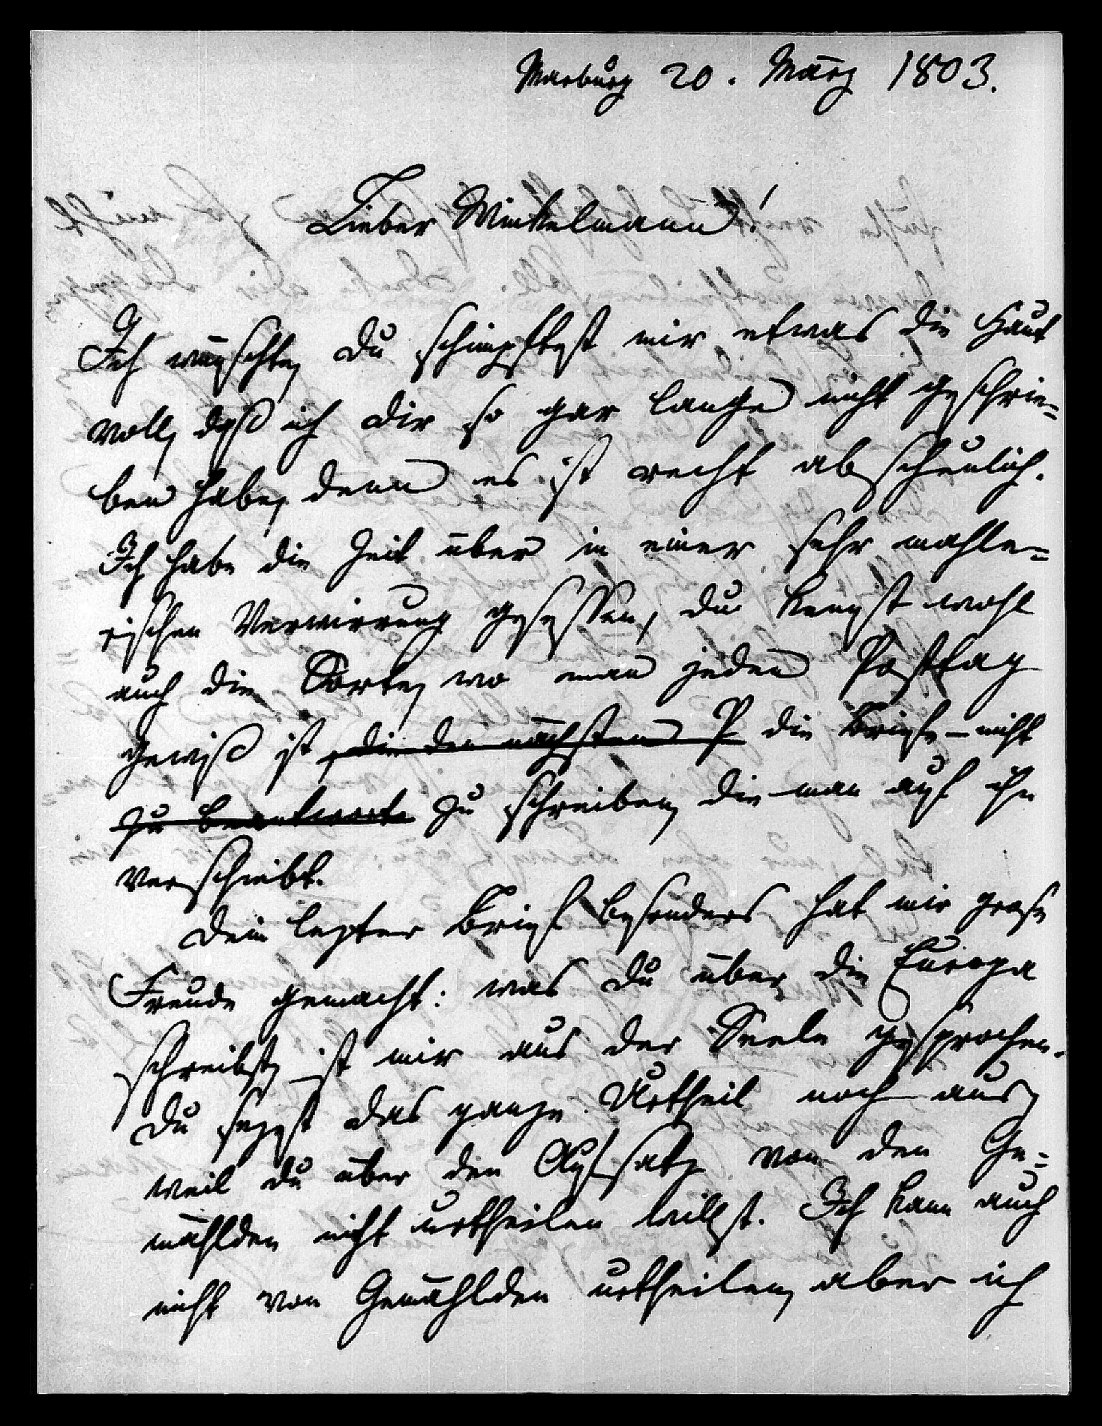 Marburg 20. März 1803.
Lieber Winkelmann!
Ich wünschte, du schimpftest mir etwas die Haut
voll, daß ich dir so gar lange nicht geschrie=
ben habe, denn es ist recht abscheulich.
Ich habe die Zeit über in einer sehr mahle=
rischen Verwirrung gesessen, du kennst wohl
auch die Sorte, wo man jeden Posttag
gewiß ist, die den nächsten P die Briefe nicht
zu beantworte zu schreiben, die man auf ihn
verschiebt.
Dein lezter Brief besonders hat mir große
Freude gemacht: was du über die Europa
schreibst, ist mir aus der Seele gesprochen.
du sezest das ganze Urtheil noch aus,
weil du über den Aufsatz von den Ge=
mählden nicht urtheilen willst. Ich kann auch
nicht von Gemählden urtheilen, aber ich